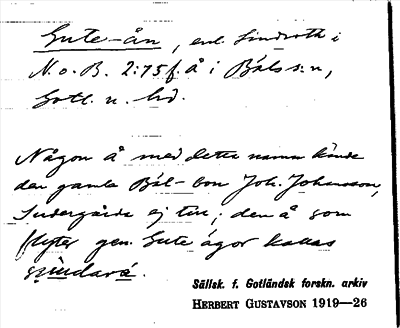 Gute-ån, enl. Lindroth i
N.o.B. 2:75 f. å i Bäls s:n,
Gotl. n. hd.
Någon å med detta namn kände
den gamle Bäl-bon Joh. Johansson,
ej till; den å som
flyter gen. Gute ägor kallas
Sällsk. f. Gotländsk forskn. arkiv
HERBERT GUSTAVSON 1919—26